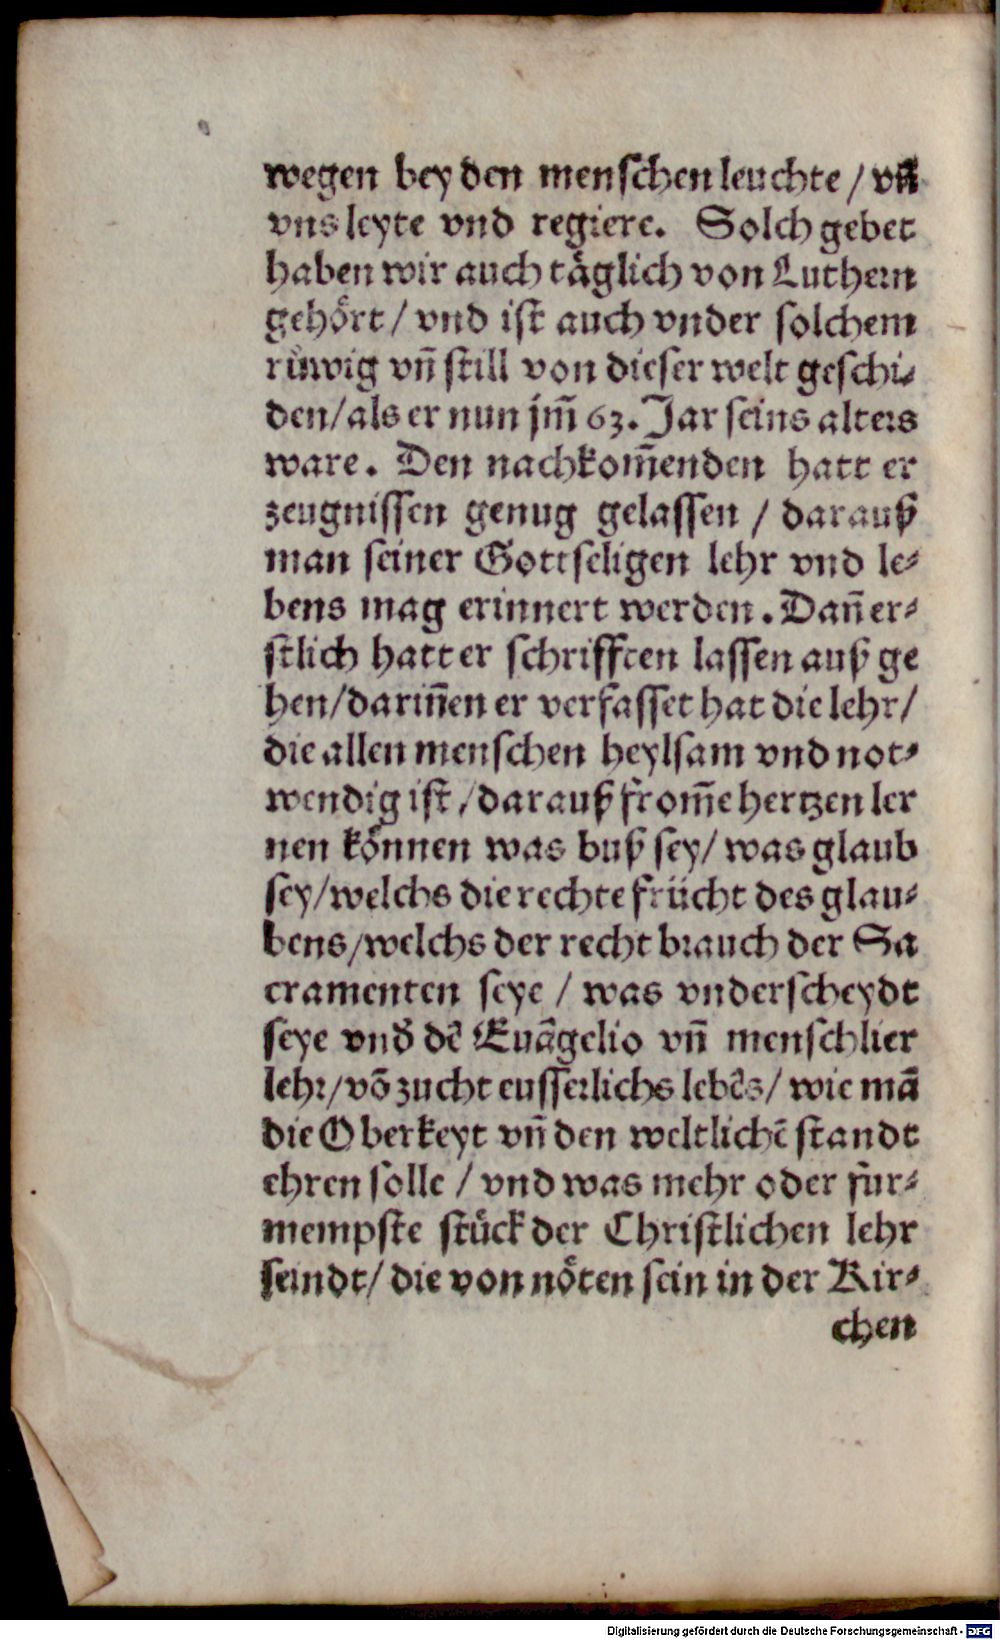 wegen bey den menschen leuchte / vñ
vns leyte vnd regiere. Solch gebet
haben wir auch täglich von Luthern
gehört / vnd ist auch vnder solchem
rüwig vñ still von dieser welt geschi-
den / als er nun jm̃ 63. Jar seins alters
ware. Den nachkom̃enden hatt er
zeugnissen genug gelassen / darauß
man seiner Gottseligen lehr vnd le-
bens mag erinnert werden. Dañ er-
stlich hatt er schrifften lassen auß ge
hen / dariñen er verfasset hat die lehr /
die allen menschen heylsam vnd not-
wendig ist / darauß from̃e hertzen ler
nen können was buß sey / was glaub
sey / welchs die rechte frücht des glau-
bens / welchs der recht brauch der Sa
cramenten seye / was vnderscheydt
seye vnd̕ dẽ Euãgelio vñ menschlier
lehr / võ zucht eusserlichs lebẽs / wie mã
die Oberkeyt vñ den weltlichẽ standt
ehren solle / vnd was mehr oder für-
mempste stück der Christlichen lehr
seindt / die von nöten sein in der Kir-
chen
Digitalisierung gefördert durch die Deutsche Forschungsgemeinschaft - DFG